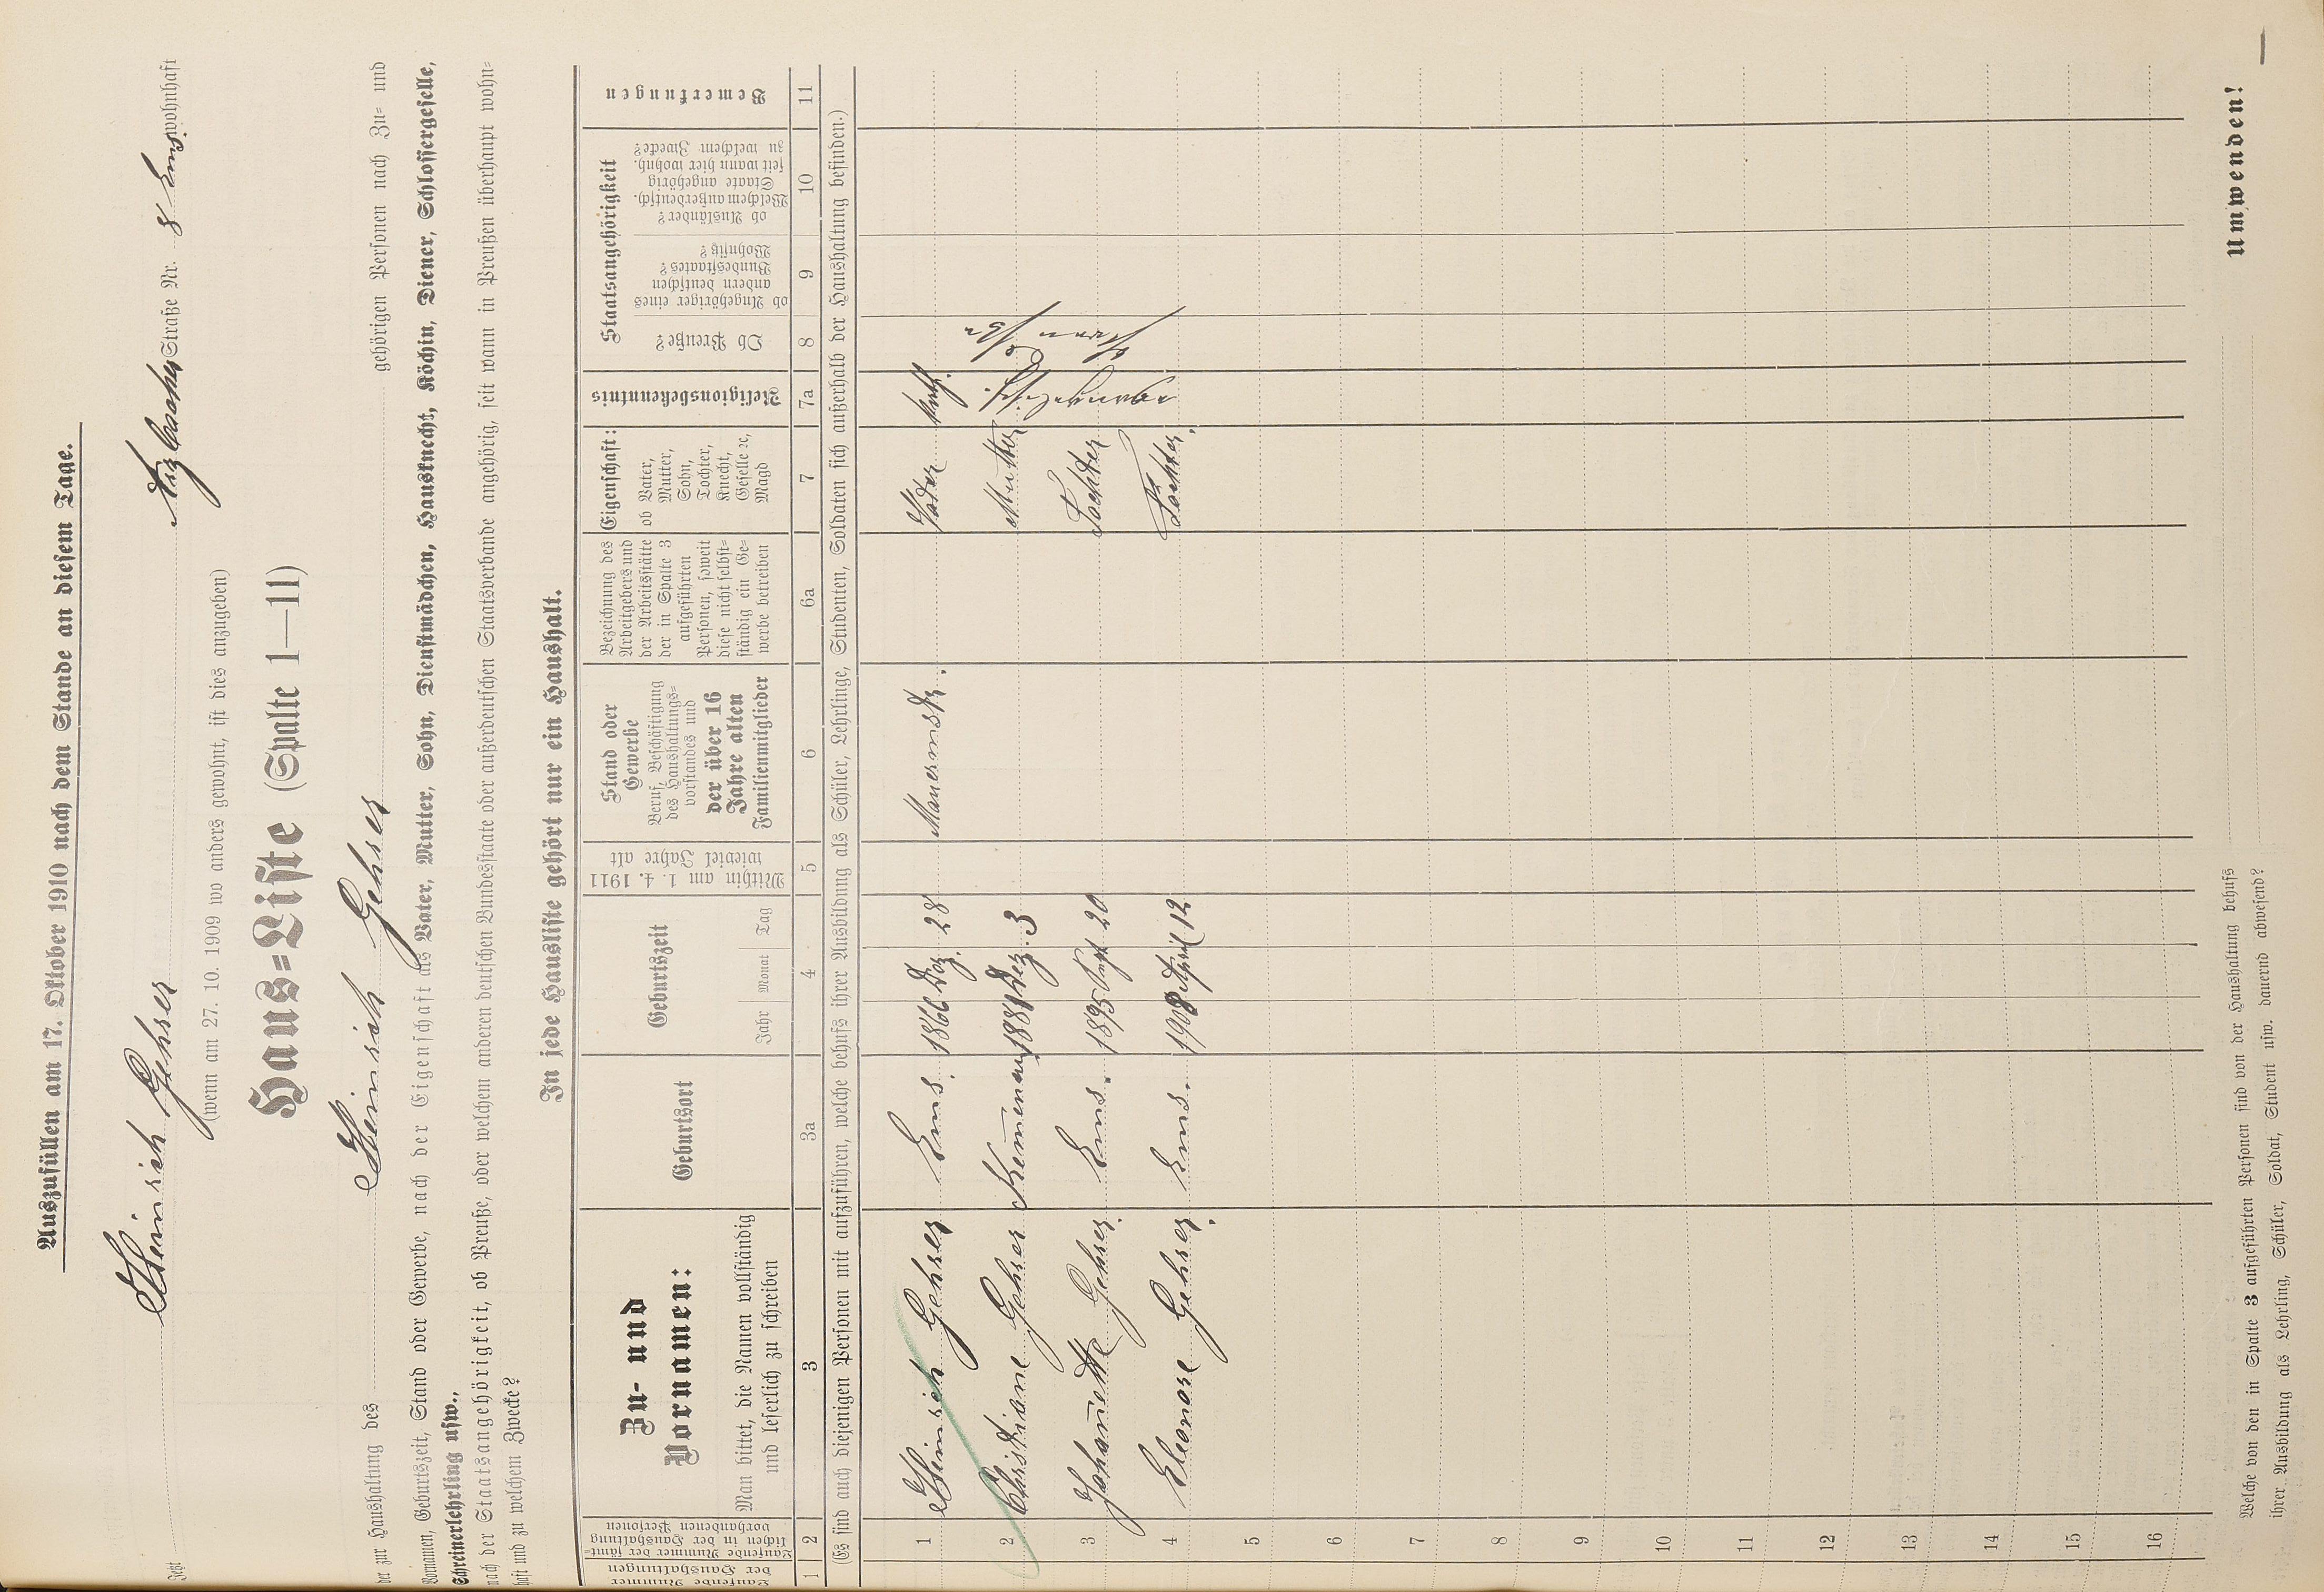 Auszufüllen am 17. Oktober 1910 nach dem Stande an diesem Tage.
Jetzt Heinrich Gehrer Arzbacher Straße Nr. 8 Ems wohnhaft
(wenn am 27. 10. 1909 wo anders gewohnt, ist dies anzugeben)
Haus=Liste (Spalte 1—11)
der zur Haushaltung des Heinrich Gehrer gehörigen Personen nach Zu= und
Vornamen, Geburtszeit, Stand oder Gewerbe, nach der Eigenschaft als Vater, Mutter, Sohn, Dienstmädchen, Hausknecht, Köchin, Diener, Schlossergeselle,
Schreinerlehrling usw.,
nach der Staatsangehörigkeit, ob Preuße, oder welchem anderen deutschen Bundesstaate oder außerdeutschen Staatsverbande angehörig, seit wann in Preußen überhaupt wohn=
haft und zu welchem Zwecke?
In jede Hausliste gehört nur ein Haushalt.
Laufende Nummer
der Haushaltungen
Laufende Nummer der sämt=
lichen in der Haushaltung
vorhandenen Personen
Zu- und
Vornamen:
Man bittet, die Namen vollständig
und leserlich zu schreiben
Geburtsort
Geburtszeit
Jahr Monat Tag
Mithin am 1. 4. 1911
wieviel Jahre alt
Stand oder
Gewerbe
Beruf, Beschäftigung
des Haushaltungs=
vorstandes und
der über 16
Jahre alten
Familienmitglieder
Bezeichnung des
Arbeitgebers und
der Arbeitsstätte
der in Spalte 3
aufgeführten
Personen, soweit
diese nicht selbst=
ständig ein Ge=
werbe betreiben
Eigenschaft:
ob Vater,
Mutter,
Sohn,
Tochter,
Knecht,
Geselle ꝛc,
Magd
Religionsbekenntnis
Staatsangehörigkeit
Ob Preuße?
ob Angehöriger eines
andern deutschen
Bundesstaates?
Wohnsitz?
ob Ausländer?
Welchem außerdeutsch.
Staate angehörig
seit wann hier wohnh.
zu welchem Zwecke?
Bemerkungen
1 2 3 3a 4 5 6 6a 7 7a 8 9 10 11
(Es sind auch diejenigen Personen mit aufzuführen, welche behufs ihrer Ausbildung als Schüler, Lehrlinge, Studenten, Soldaten sich außerhalb der Haushaltung befinden.)
1 Heinrich Gehrer Ems. 1866 Dez. 28 Maurermstr. Vater kath.
2 Christiane Gehrer Kem̄enau Dez. 3 Mutter
3 Johan̄ette Gehrer. Ems. 1895 Sept 20 Tochter
4 Eleonore Gehrer. Ems. 1908 April 12 Tochter.
5
6
7
8
9
10
11
12
13
14
15
16
Welche von den in Spalte 3 aufgeführten Personen sind von der Haushaltung behufs
ihrer Ausbildung als Lehrling, Schüler, Soldat, Student usw. dauernd abwesend?
Umwenden!